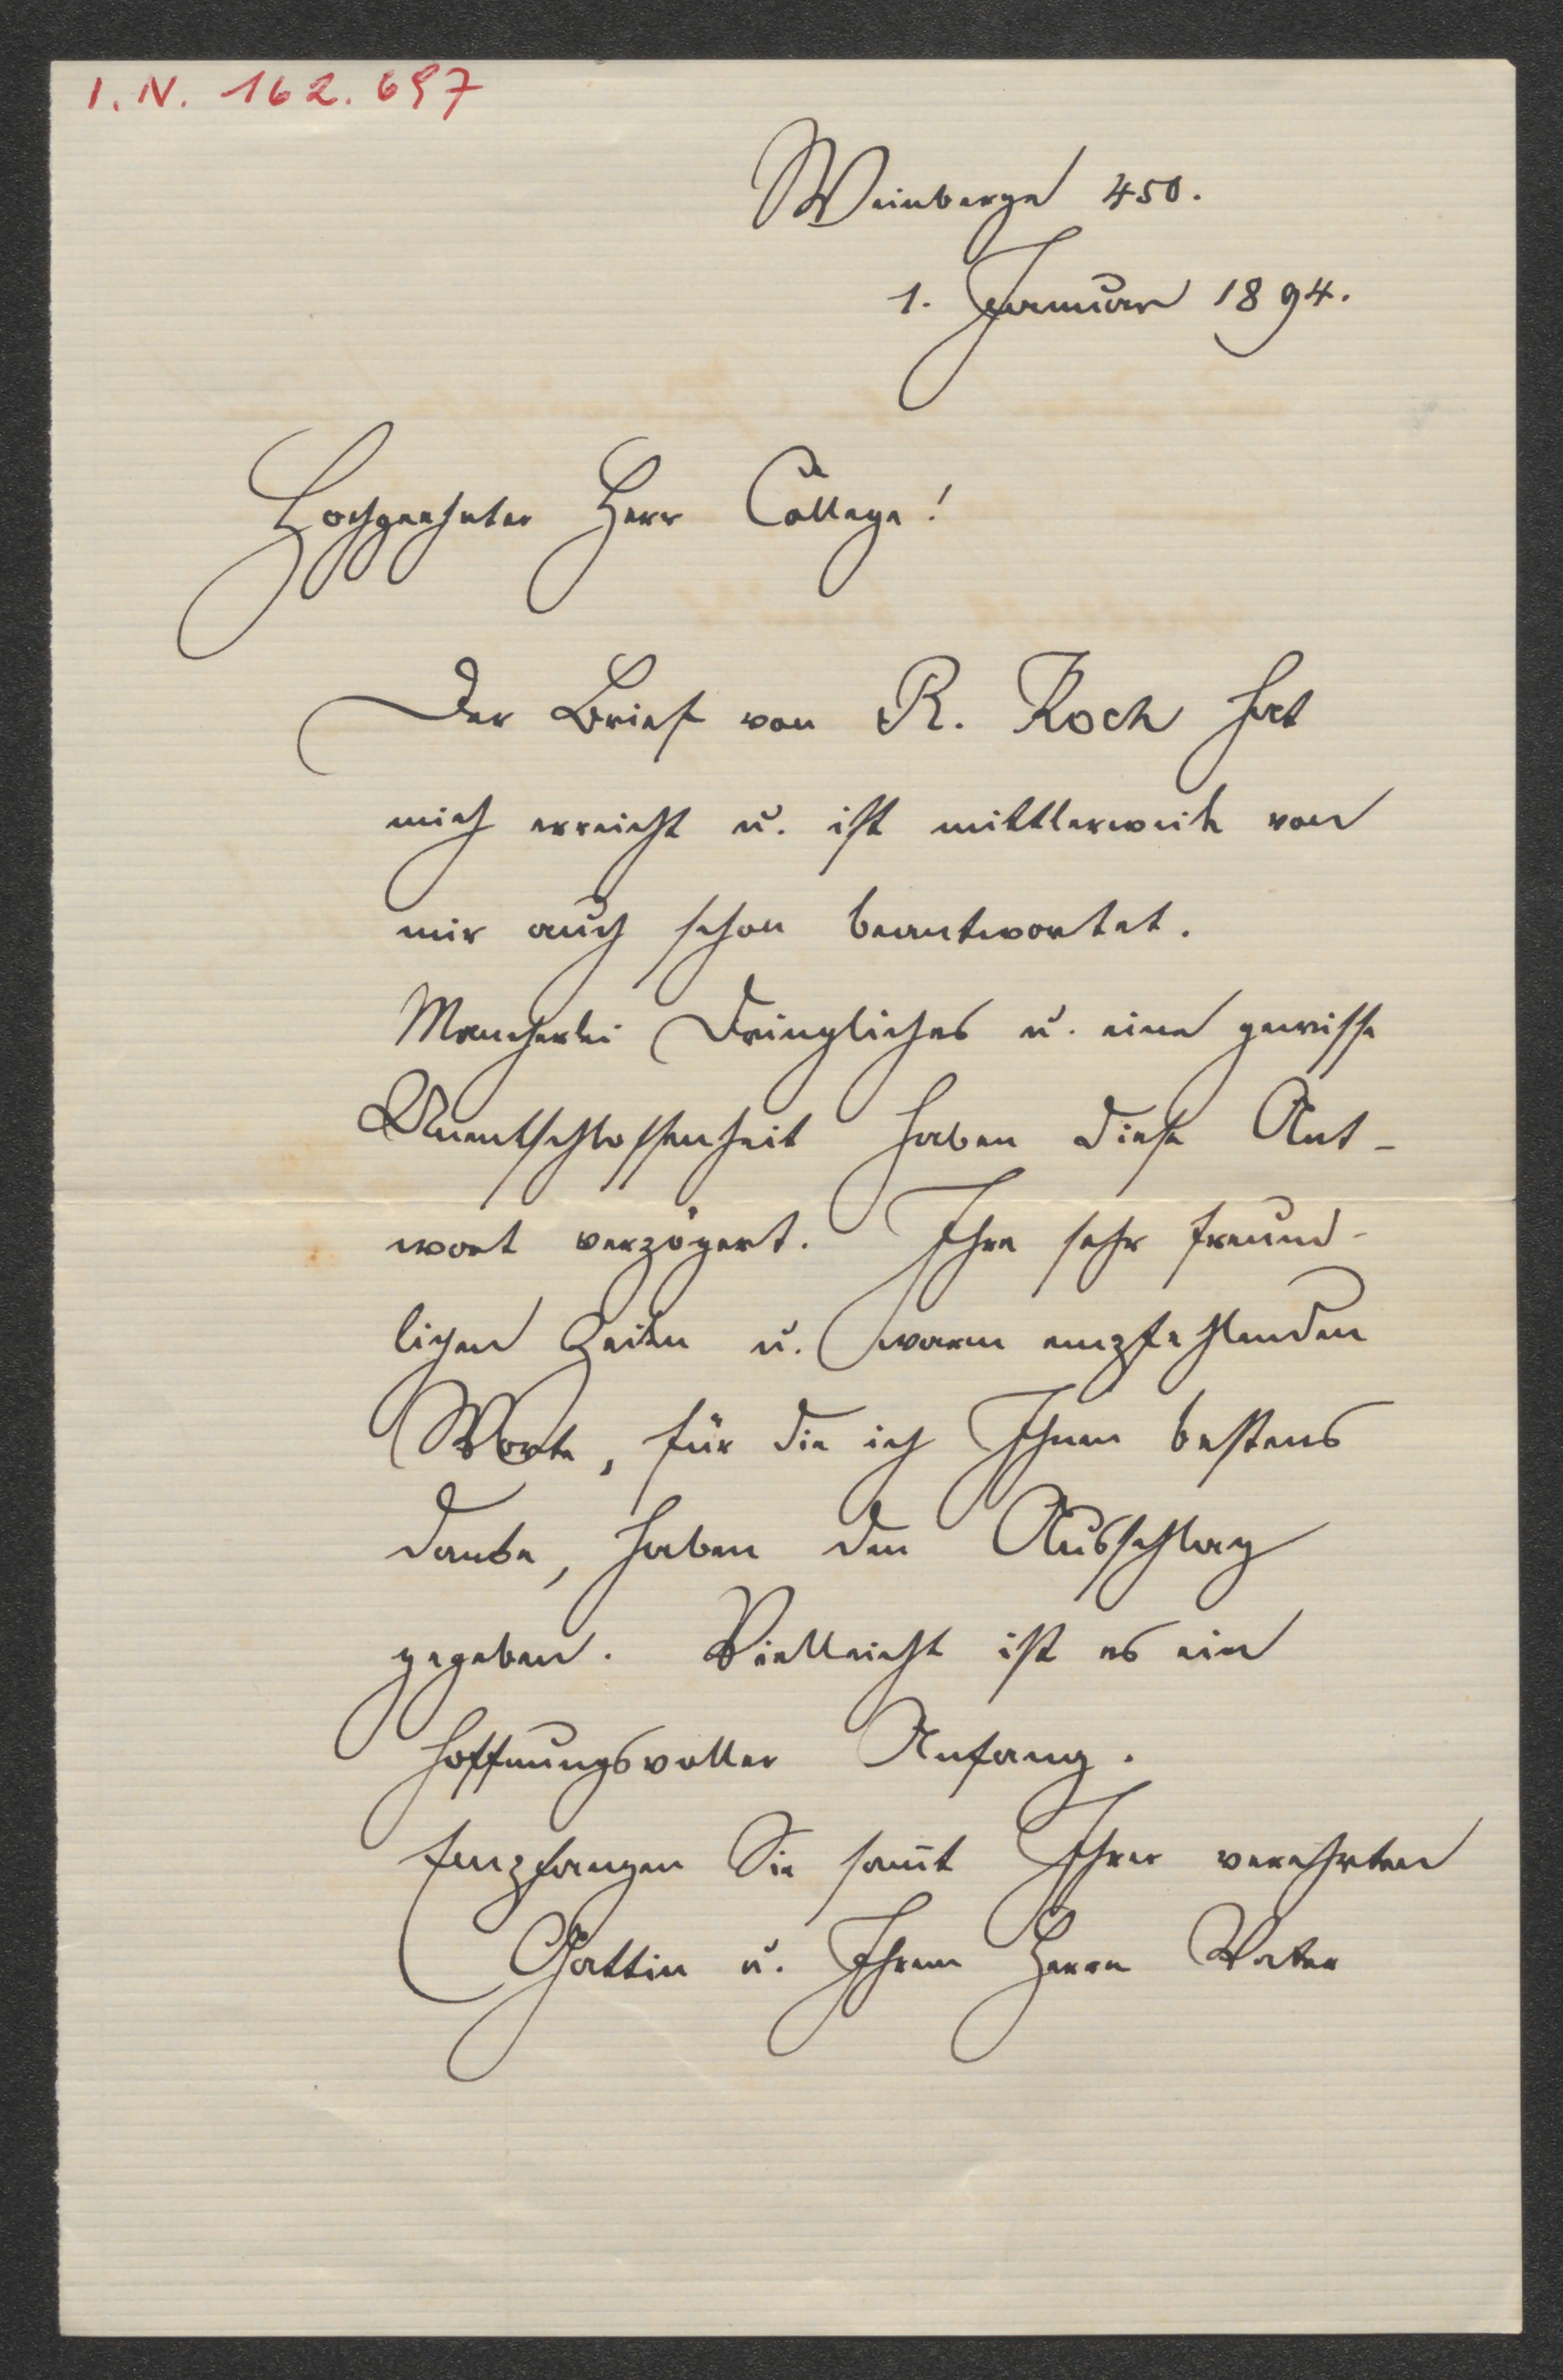 I. N. 162.697
Weinberge 450.
1. Januar 1894.
Hochgeehrter Herr College!
Der Brief von R. Koch hat
mich erreicht u. ist mittlerweile von
mir auch schon beantwortet.
Mancherlei Dringliches u. eine gewisse
Unentschlossenheit haben diese Ant-
wort verzögert. Ihre sehr freund-
lichen Zeilen u. warm empfehlenden
Worte, für die ich Ihnen bestens
danke, haben den Ausschlag
gegeben. Vielleicht ist es ein
hoffnungsvoller Anfang.
Empfangen Sie sam̅t Ihrer verehrten
Gattin u. Ihrem Herrn Vater